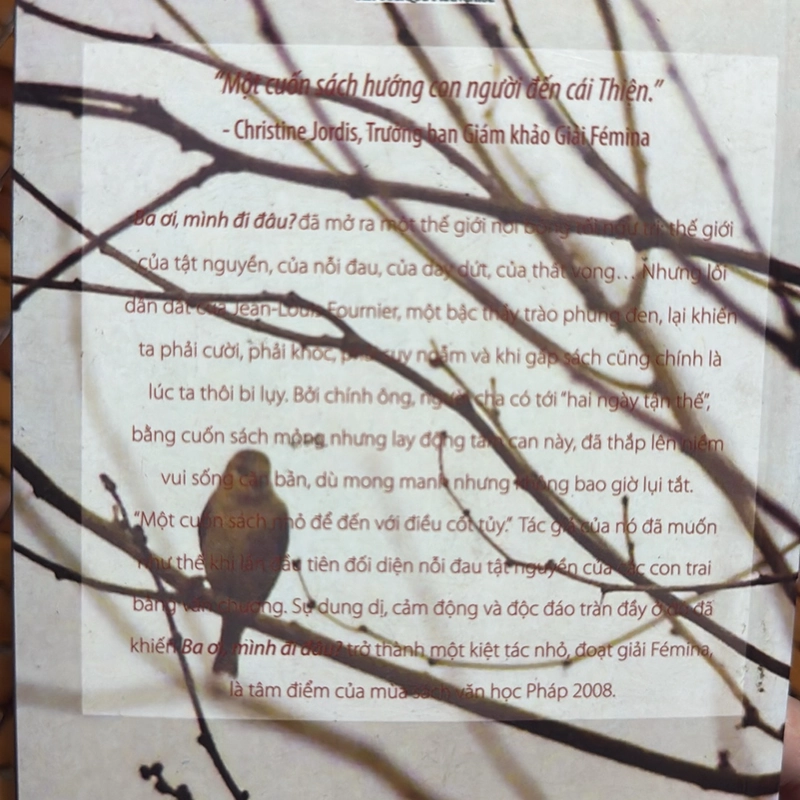 “Một cuốn sách hướng con người đến cái Thiện.”
- Christine Jordis, Trưởng ban Giám khảo Giải Fémina
Ba ơi, mình đi đâu? đã mở ra một thế giới nơi thế giới
của tật nguyền, của nỗi đau, của day dứt, của thất vọng… Nhưng lối
dẫn dắt của Jean-Louis Fournier, một bậc thầy trào phúng đen, lại khiến
ta phải cười, phải khóc, phải suy ngẫm và khi gấp sách cũng chính là
lúc ta thôi bi lụy. Bởi chính ông, người cha có tới “hai ngày tận thế”,
bằng cuốn sách mỏng nhưng lay động tâm can này, đã thắp lên niềm
vui sống căn bản, dù mong manh nhưng không bao giờ lụi tắt.
“Một cuốn sách nhỏ để đến với điều cốt tủy.” Tác giả của nó đã muốn
như thế khi lần đầu tiên đối diện nỗi đau tật nguyền của các con trai
bằng văn chương. Sự dung dị, cảm động và độc đáo tràn đầy ở đó đã
khiến Ba ơi, mình đi đâu? trở thành một kiệt tác nhỏ, đoạt giải Fémina,
là tâm điểm của mùa sách văn học Pháp 2008.